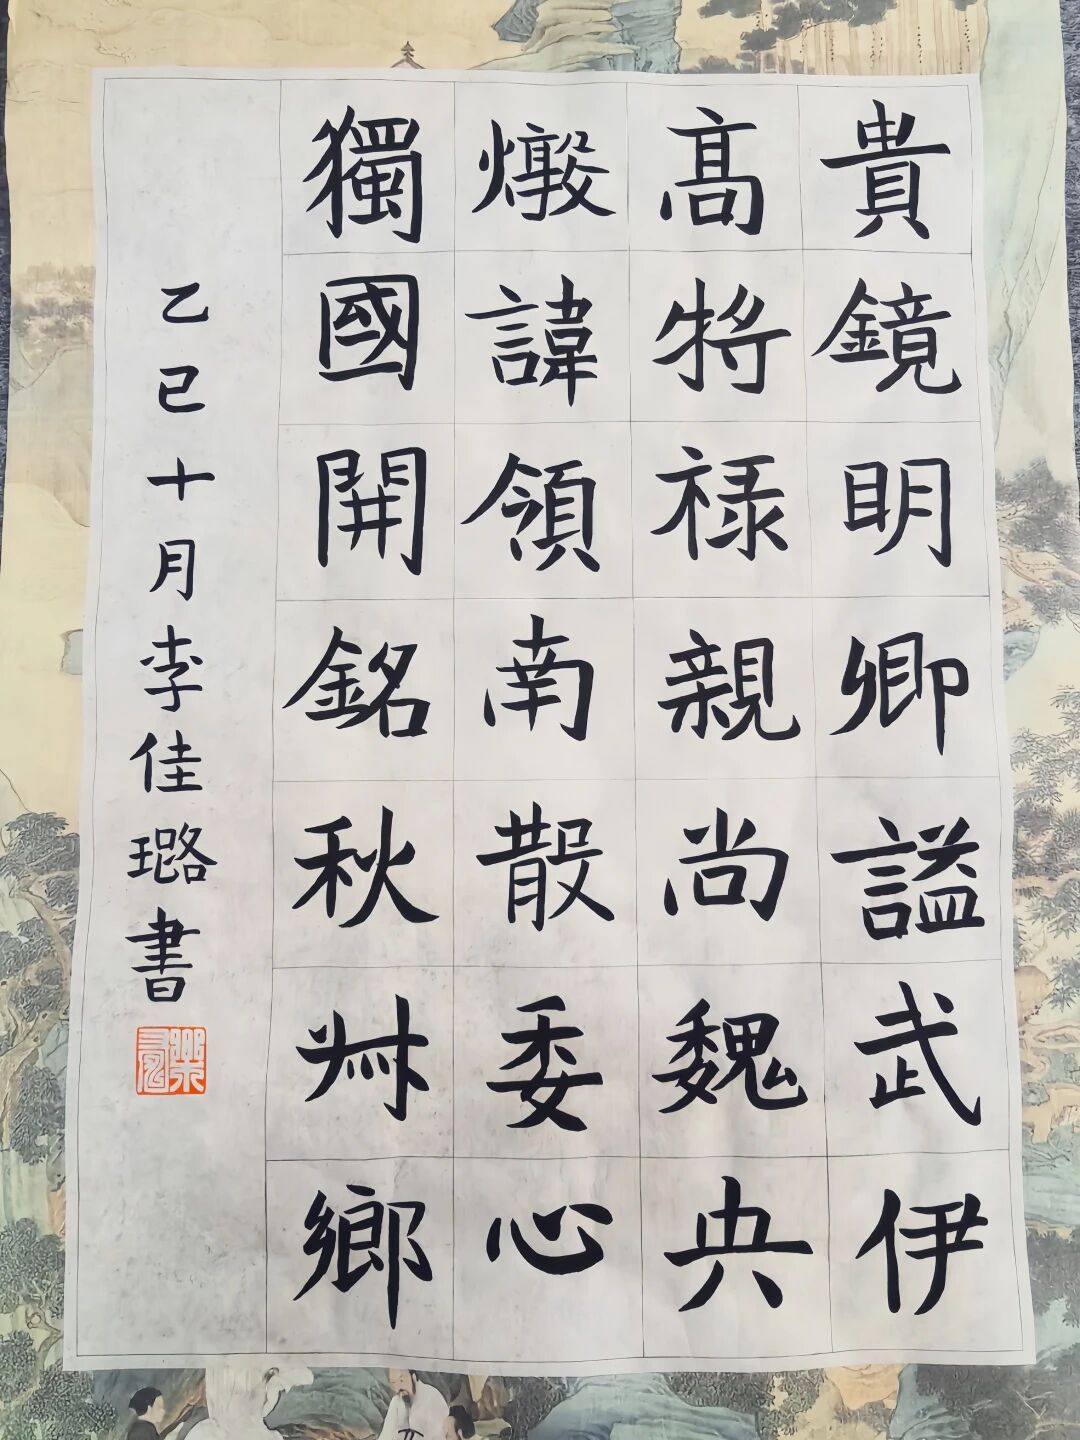 貴鏡明卿謚武伊
高將祿親尚魏央
燉諱領南散委心
獨國開銘秋艸鄉
乙巳十月李佳璐書